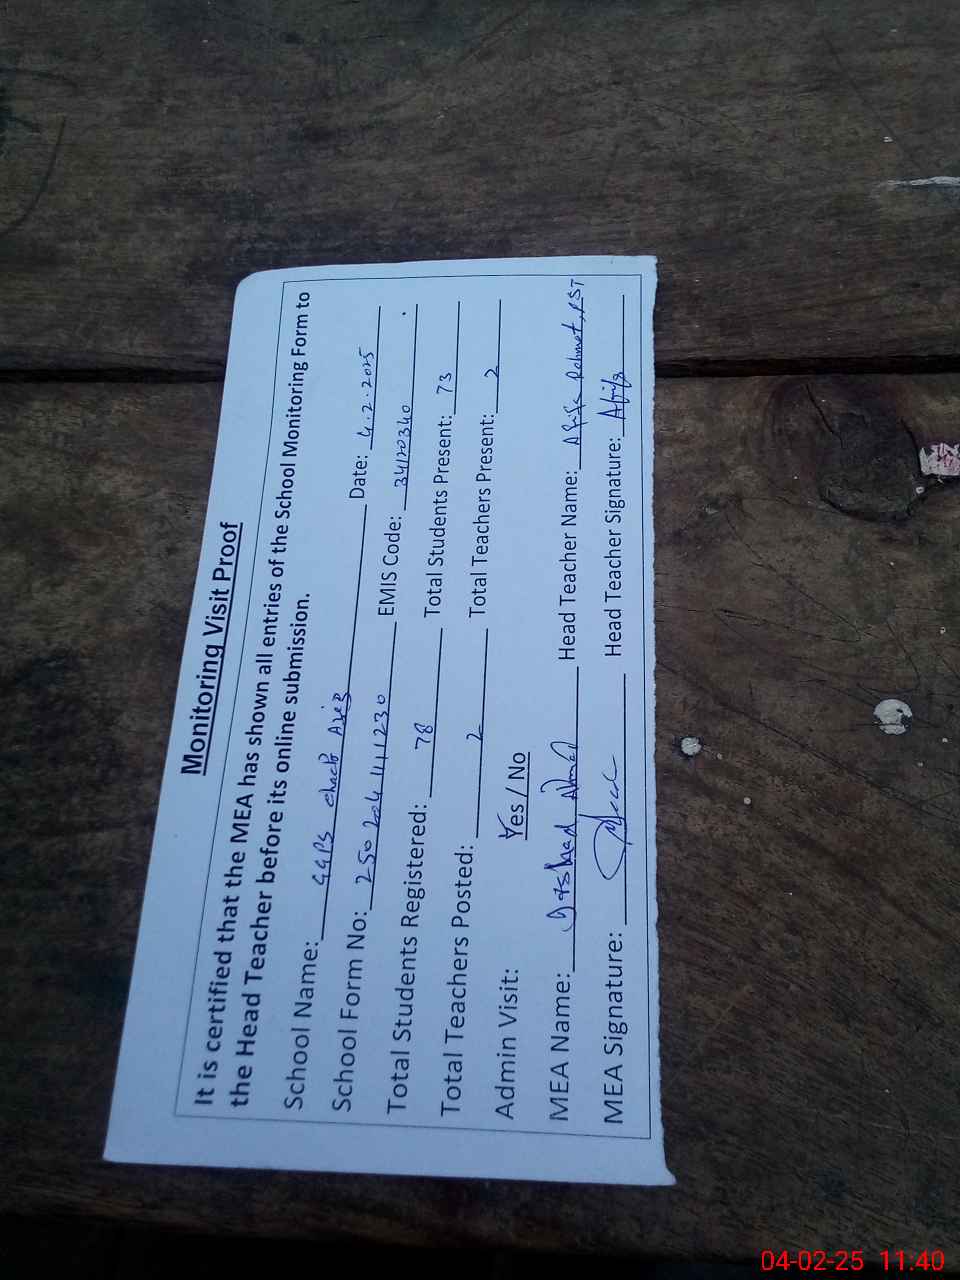 Monitoring Visit Proof
It is certified that the MEA has shown all entries of the School Monitoring Form to
the Head Teacher before its online submission.
School Name: GGPS Chack Date: 4.2.2025
School Form No: EMIS Code: 34120340
Total Students Registered: 78 Total Students Present: 73
Total Teachers Posted: 2 Total Teachers Present: 2
Admin Visit: Yes / No
MEA Name: Ahmad Head Teacher Name: Rahmat, PST
MEA Signature: Head Teacher Signature:
04-02-25 11.40